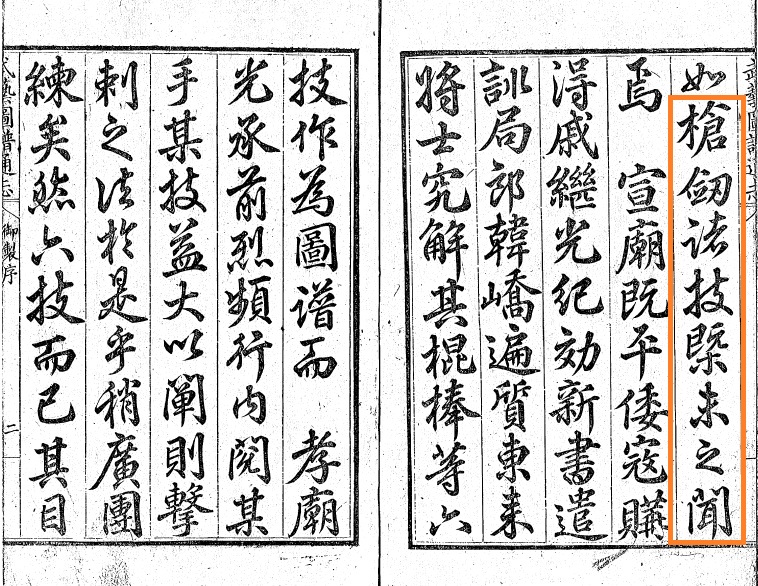 如槍劒諸技槩未之聞
焉 宣廟既平倭寇購
得戚繼光紀効新書遣
訓局郎韓嶠遍質東来
將士究解其棍棒等六
技作為圖譜而 孝廟
光承前烈頻行内閱某
手某技益大以闡則擊
刺之法於是乎稍廣團
練矣然六技而已其目
武藝圖譜通志
御製序
二